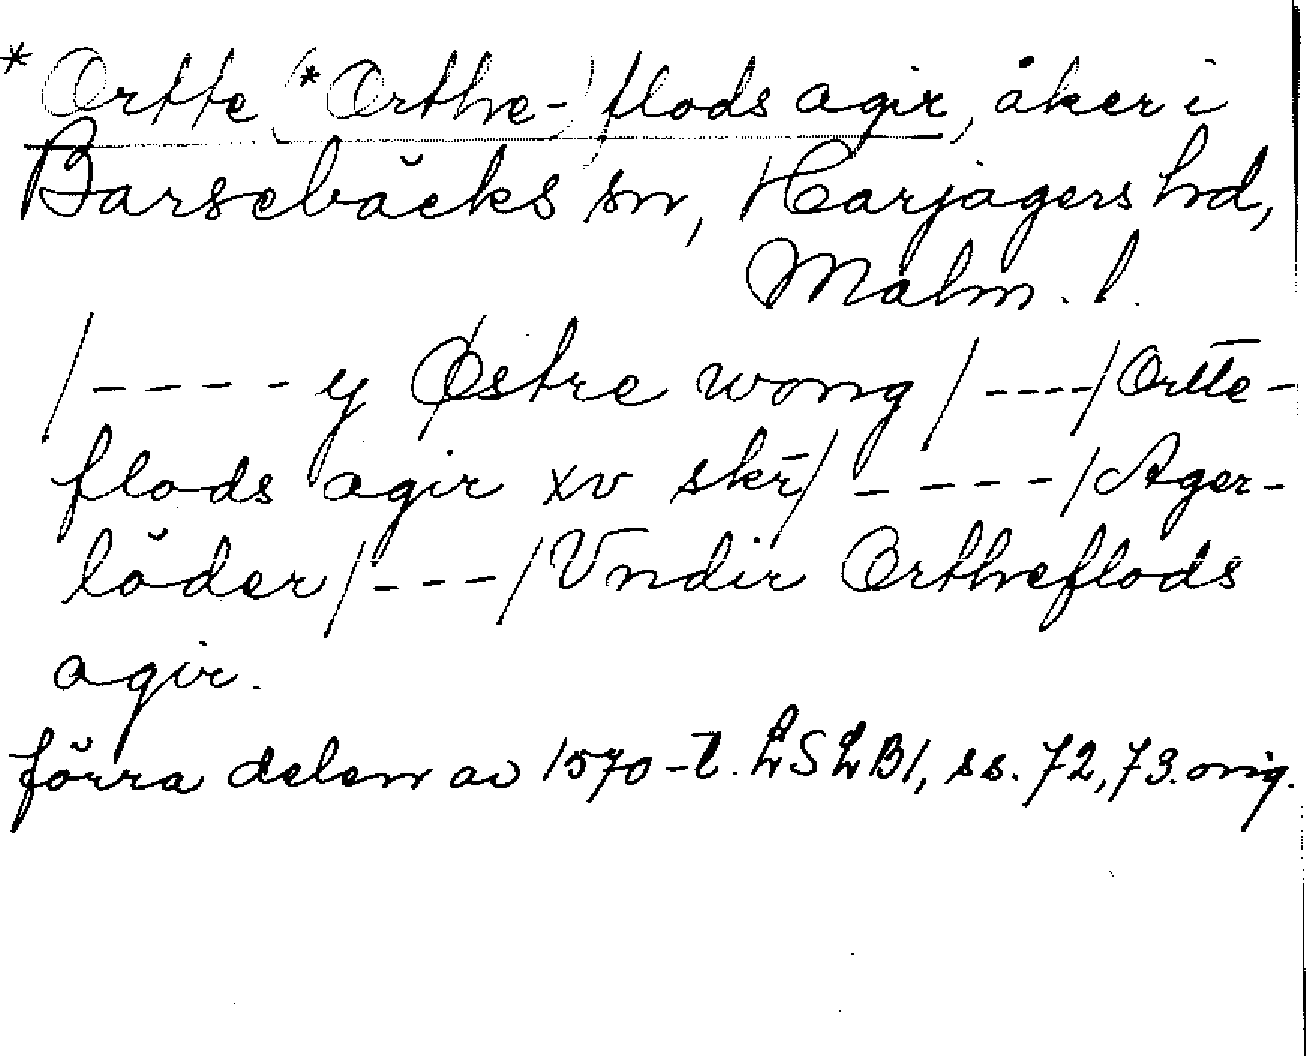 *Ortte (*Orthe-) flods agir, åker i
Barsebäcks sn, Harjagers hd,
Malm. l.
/---- y Østre wong /----/ Ortte-
flods agir xv skr/ ---- / Ager-
löder /---/ Vndir Ortheflods
agir.
förra delen av 1570-t. LSLB1, ss. 72, 73. orig.